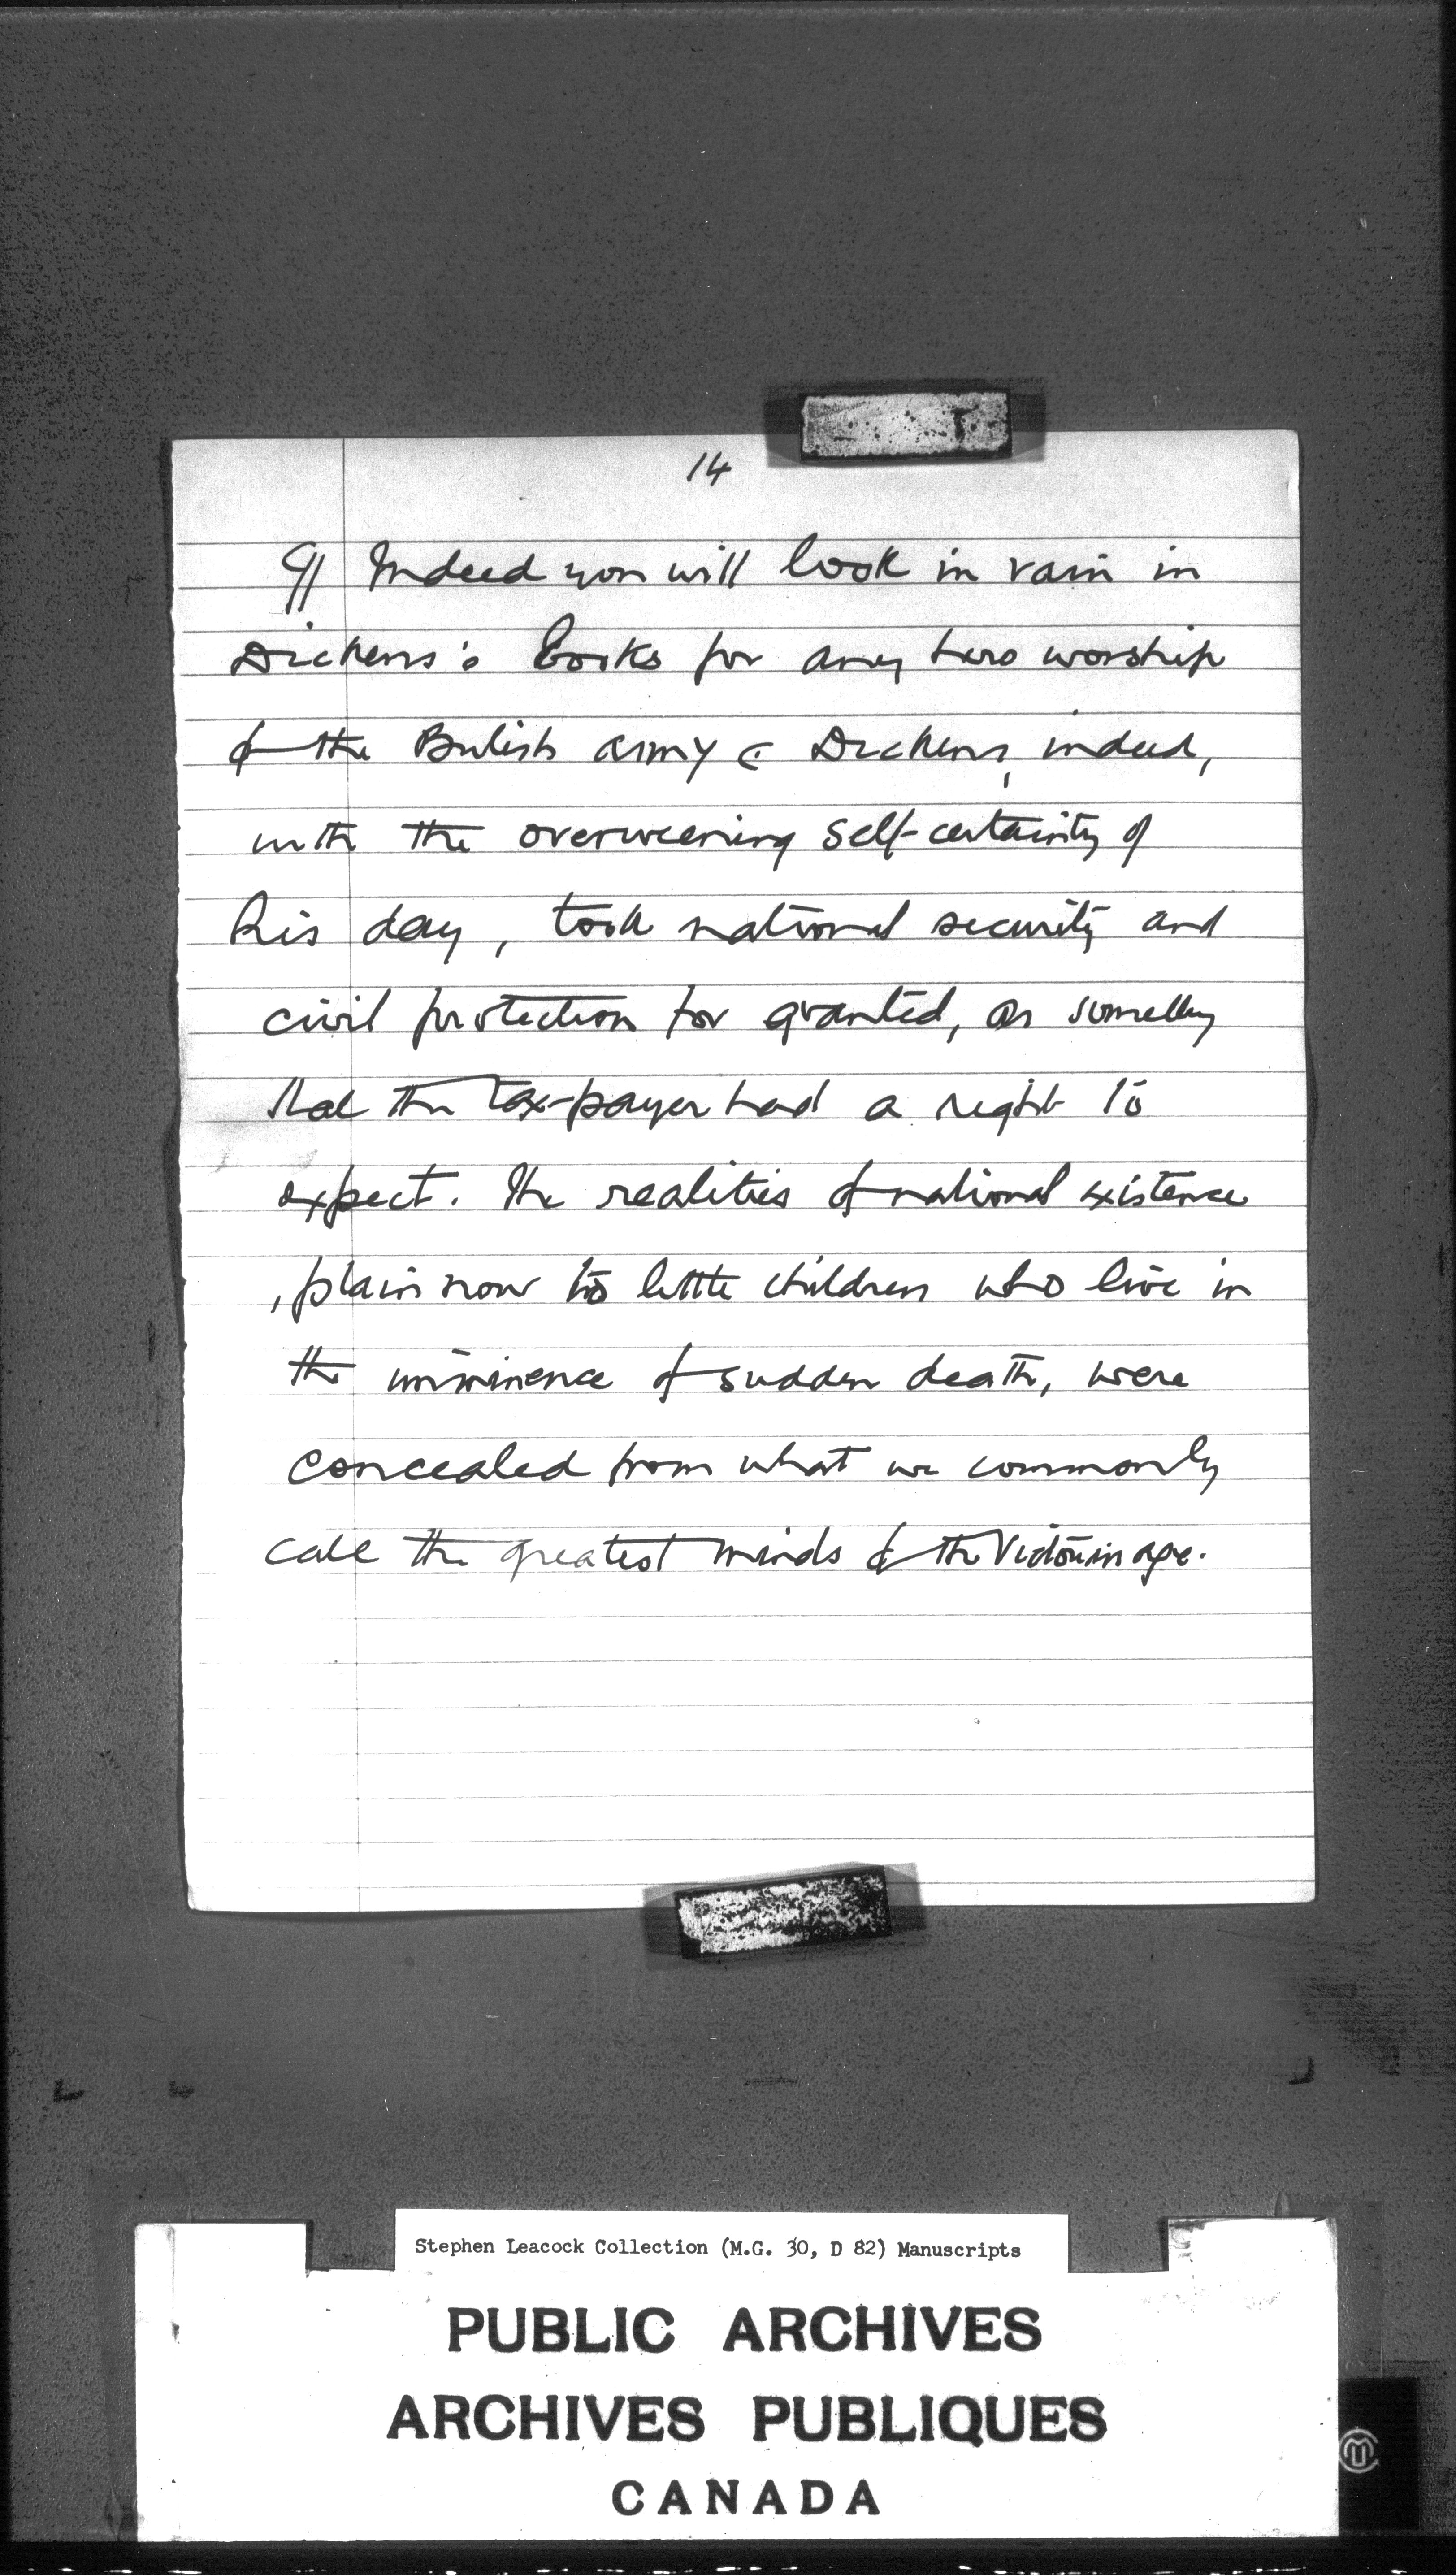 14
¶ Indeed you will look in vain in
Dickens's books for any hero worship
of the British army. Dickens, indeed,
with the overweening self-certainty of
his day, took national security and
civil protection for granted, as something
that the tax-payer had a right to
expect. The realities of national existence
, plain now to little children who live in
the imminence of sudden death, were
concealed from what we commonly
call the greatest minds of the Victorian age.
Stephen Leacock Collection (M.G. 30, D 82) Manuscripts
PUBLIC ARCHIVES
ARCHIVES PUBLIQUES
CANADA